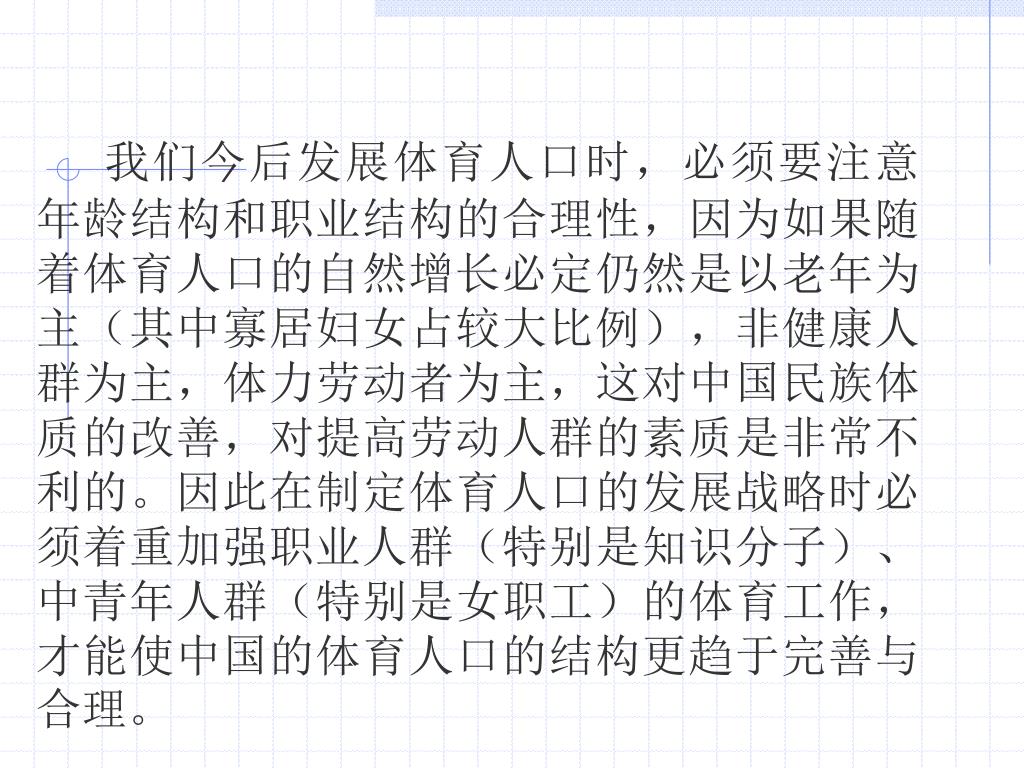 我们今后发展体育人口时，必须要注意
年龄结构和职业结构的合理性，因为如果随
着体育人口的自然增长必定仍然是以老年为
主（其中寡居妇女占较大比例），非健康人
群为主，体力劳动者为主，这对中国民族体
质的改善，对提高劳动人群的素质是非常不
利的。因此在制定体育人口的发展战略时必
须着重加强职业人群（特别是知识分子）、
中青年人群（特别是女职工）的体育工作，
才能使中国的体育人口的结构更趋于完善与
合理。